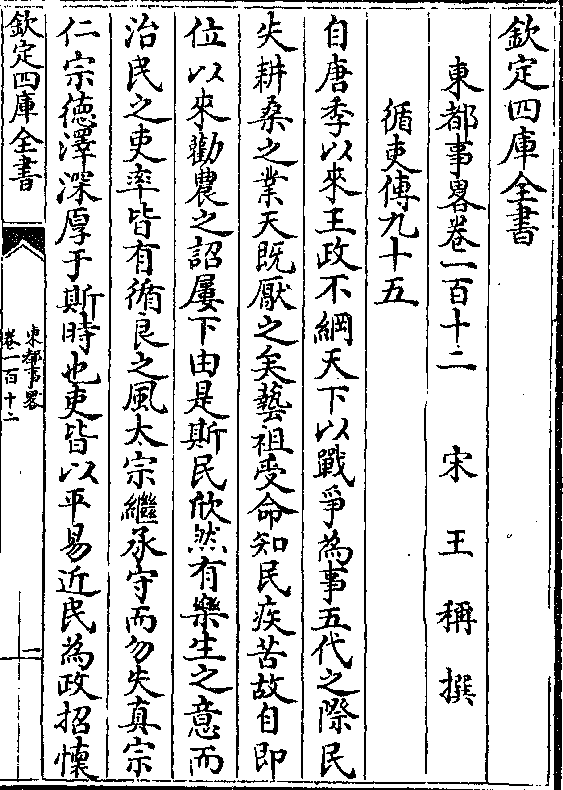 欽定四庫全書
東都事畧卷一百十二　宋　王　稱　撰
循吏傳九十五
自唐季以來王政不綱天下以戰爭為事五代之際民
失耕桑之業天既厭之矣藝祖受命知民疾苦故自即
位以來勸農之詔屢下由是斯民欣然有樂生之意而
治民之吏率皆有循良之風太宗繼承守而勿失真宗
仁宗德澤深厚于斯時也吏皆以平易近民為政招懷
欽定四庫全書
東都事畧
卷一百十二
一